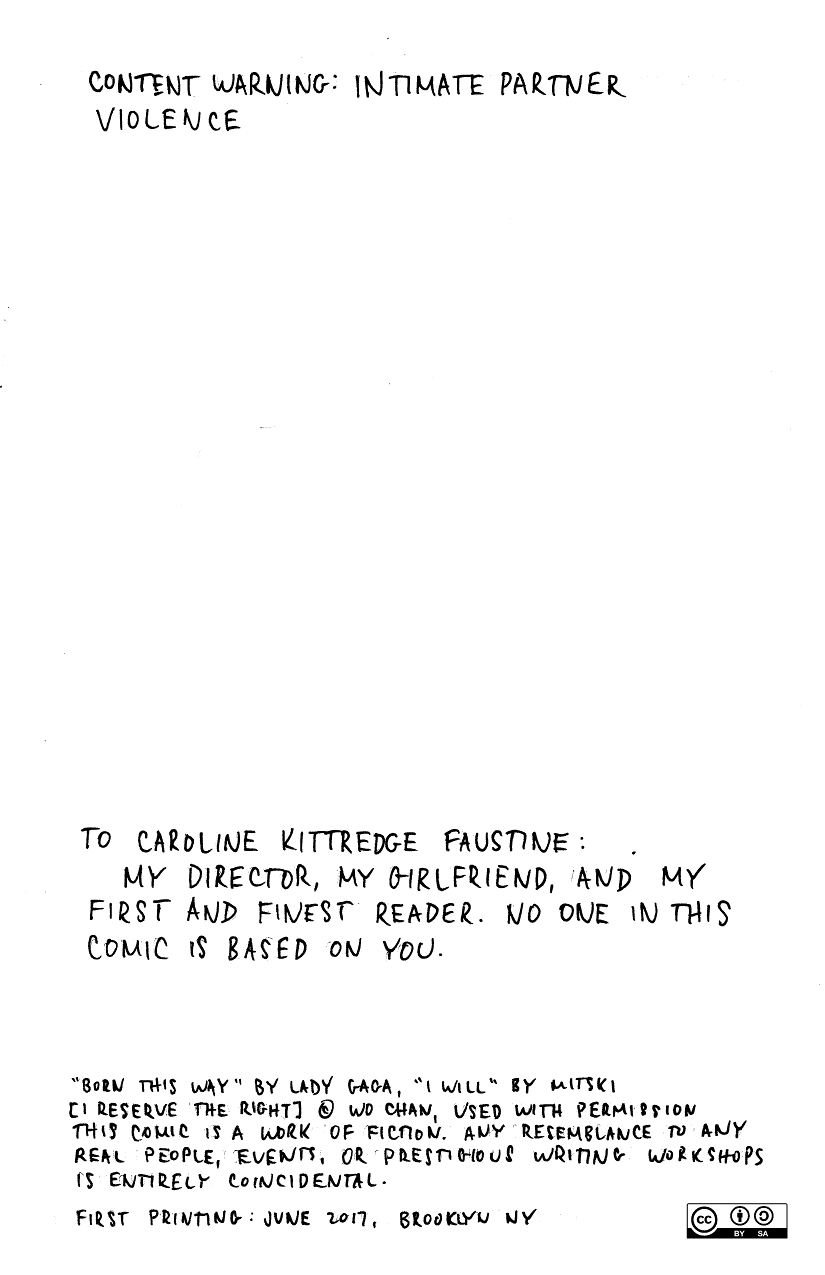 CONTENT WARNING: INTIMATE PARTNER
VIOLENCE
TO CAROLINE KITTREDGE FAUSTINE:
MY DIRECTOR, MY GIRLFRIEND, AND MY
FIRST AND FINEST READER. NO ONE IN THIS
COMIC IS BASED ON YOU.
"BORN THIS WAY" BY LADY GAGA, "I WILL" BY MITSKI
[I RESERVE THE RIGHT] © WO CHAN, USED WITH PERMISSION
THIS COMIC IS A WORK OF FICTION. ANY RESEMBLANCE TO ANY
REAL PEOPLE, EVENTS, OR PRESTIGIOUS WRITING WORKSHOPS
IS ENTIRELY COINCIDENTAL.
FIRST PRINTING: JUNE 2017, BROOKLYN NY
cc
BY SA